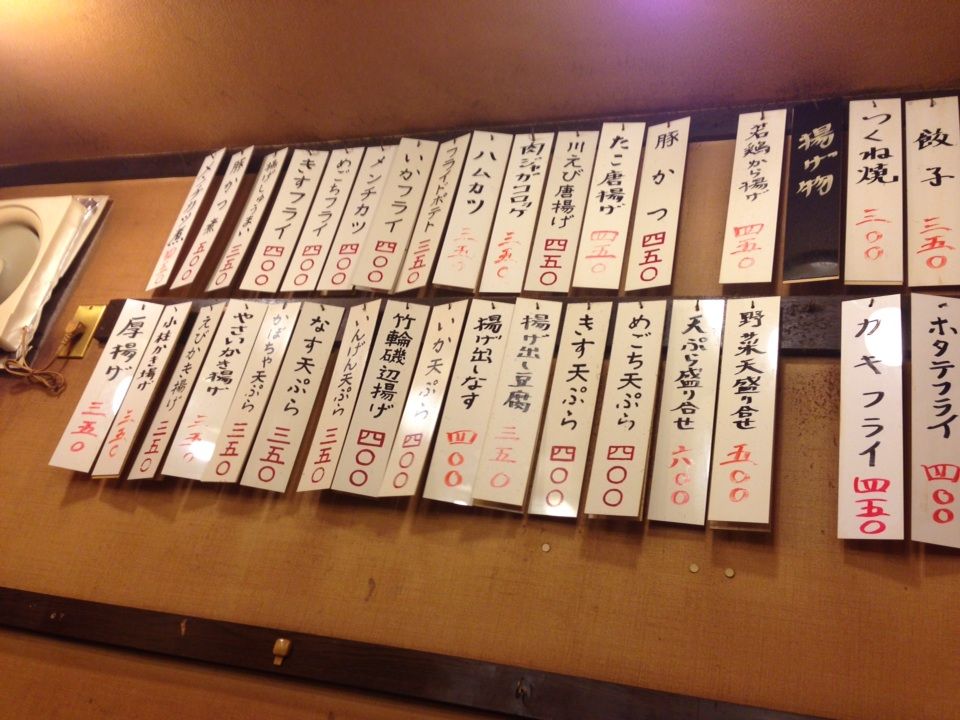 餃子 三五〇
つくね焼 三〇〇
揚げ物
若鶏から揚げ 四五〇
豚かつ 四五〇
たこ唐揚げ 四五〇
川えび唐揚げ 四五〇
肉ジャガコロッケ 三五〇
ハムカツ 三五〇
フライドポテト 三五〇
いかフライ 四〇〇
メンチカツ 四〇〇
めごちフライ 四〇〇
きすフライ 四〇〇
揚げしゅうまい 三五〇
豚かつ煮 五〇〇
ホタテフライ 四〇〇
カキフライ 四五〇
野菜天盛り合せ 五〇〇
天ぷら盛り合せ 六〇〇
めごち天ぷら 四〇〇
きす天ぷら 四〇〇
揚げ出し豆腐 三五〇
揚げ出しなす 四〇〇
いか天ぷら 四〇〇
竹輪磯辺揚げ 四〇〇
いんげん天ぷら 三五〇
なす天ぷら 三五〇
かぼちゃ天ぷら 三五〇
やさいかき揚げ 三五〇
えびかき揚げ 三五〇
小柱かき揚げ 三五〇
厚揚げ 三五〇